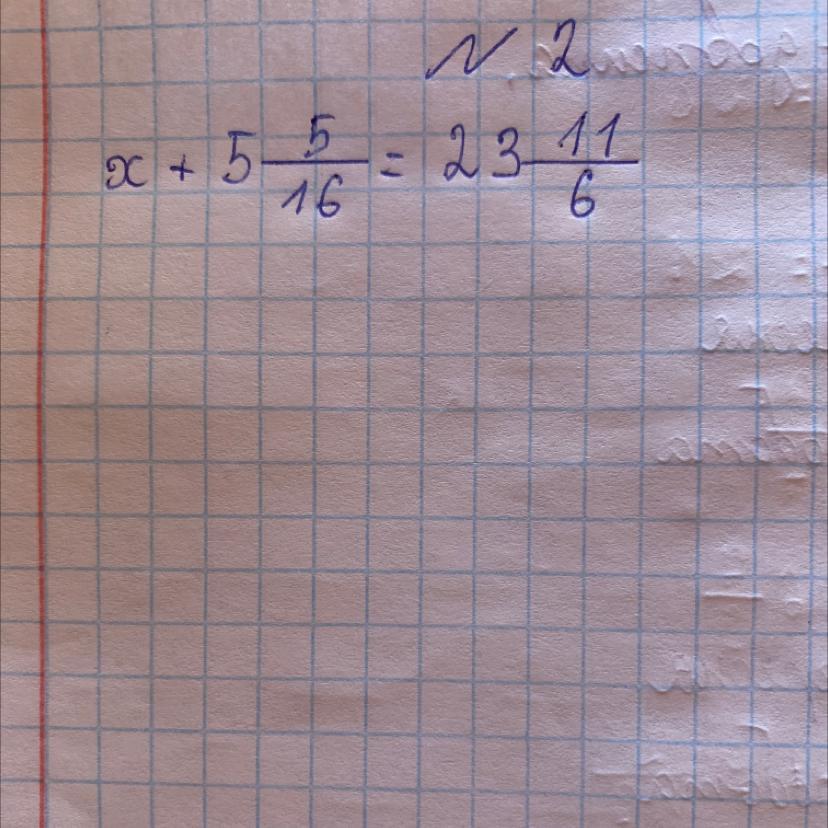 N 2
x + 5 5/16 = 23 11/6